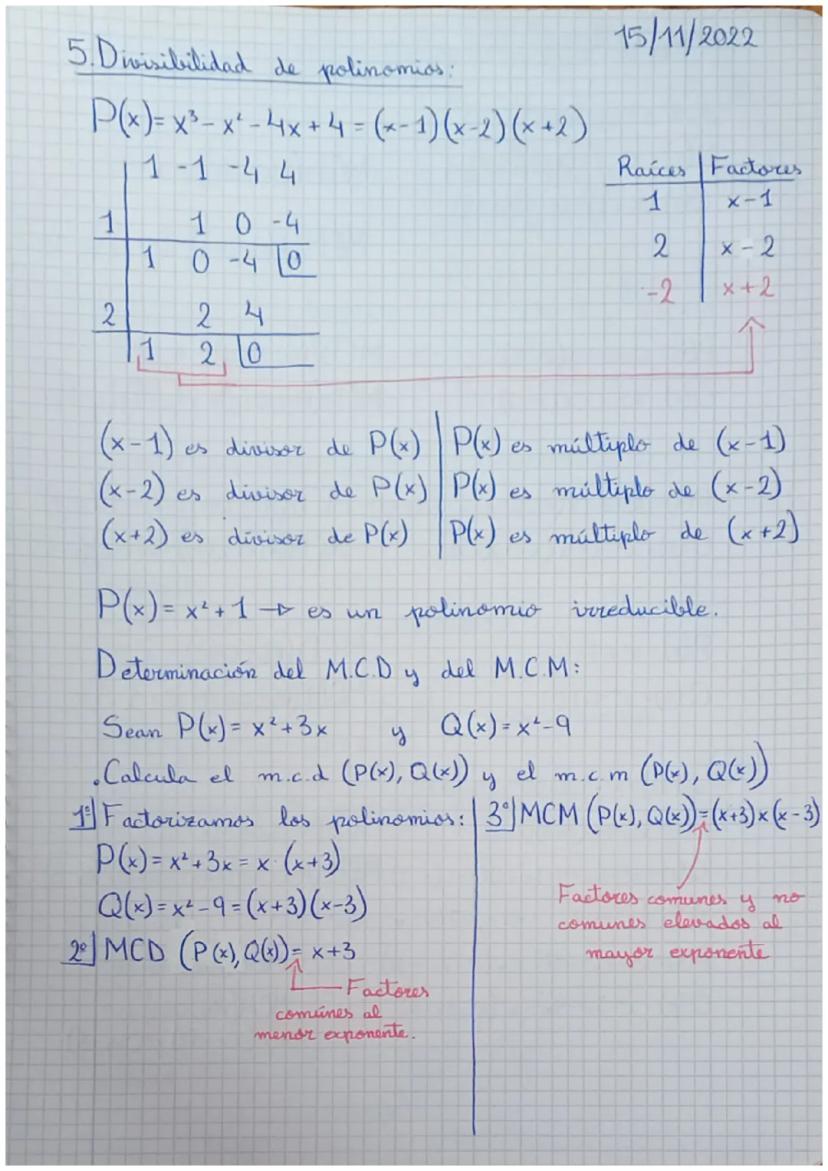 15/11/2022
5. Divisibilidad de polinomios:
P(x)= x³- x²- 4x + 4 = (x-1)(x-2)(x+2)
1 -1 -4 4
1 1 0 -4
1 0 -4 0
2 2 4
1 2 0
Raíces Factores
1 x-1
2 x-2
-2 x+2
(x-1) es divisor de P(x) P(x) es múltiplo de (x-1)
(x-2) es divisor de P(x) P(x) es múltiplo de (x-2)
(x+2) es divisor de P(x) P(x) es múltiplo de (x+2)
P(x)= x²+1 → es un polinomio irreducible.
Determinación del M.C.D y del M.C.M:
Sean P(x)= x²+3x y Q(x)=x²-9
.Calcula el m.c.d (P(x), Q(x)) y el m.c.m (P(x), Q(x))
1º] Factorizamos los polinomios:
P(x)= x²+3x = x·(x+3)
Q(x)=x²-9=(x+3)(x-3)
2º] MCD (P(x), Q(x))= x+3
Factores
comúnes al
menor exponente.
3º] MCM (P(x), Q(x))=(x+3)x(x-3)
Factores comunes y no
comunes elevados al
mayor exponente